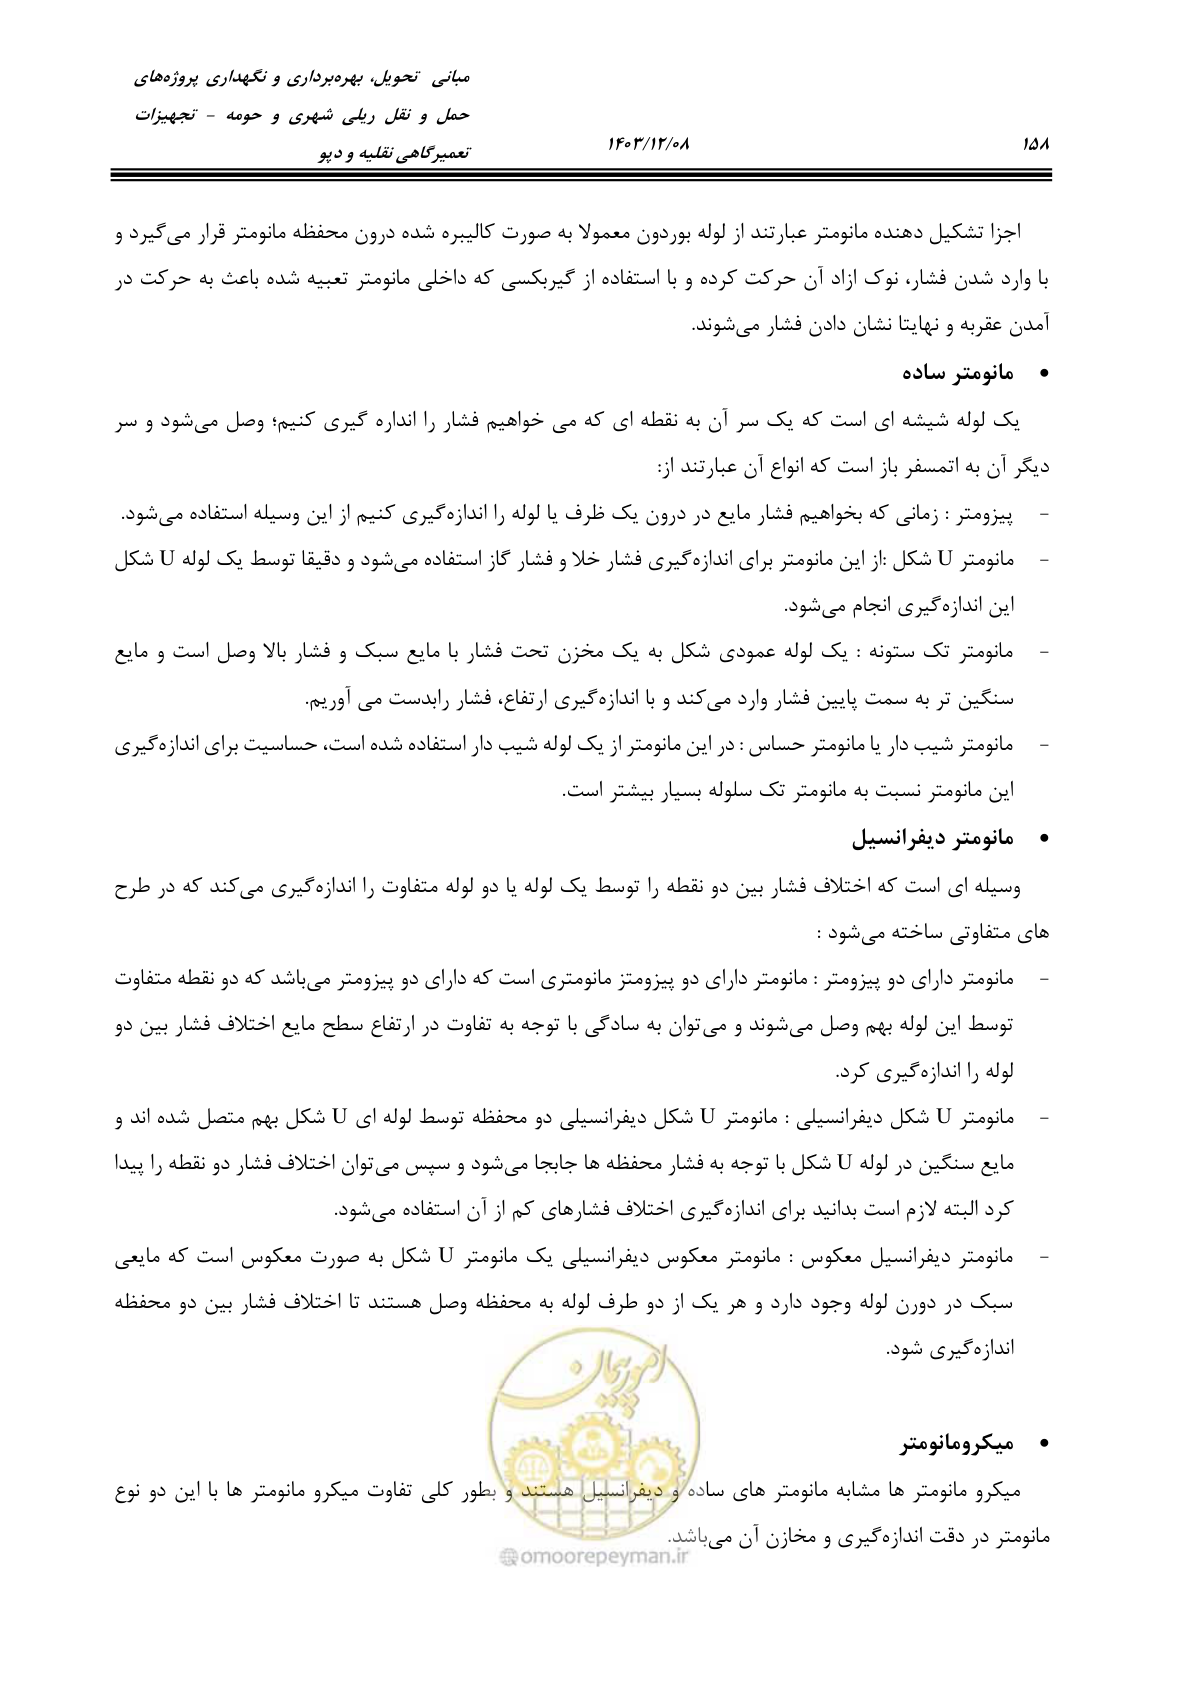 مبانی تحویل، بهره‌برداری و نگهداری پروژه‌های
حمل و نقل ریلی شهری و حومه - تجهیزات
تعمیرگاهی نقلیه و دپو
۱۴۰۳/۱۲/۰۸
۱۵۸
اجزا تشکیل دهنده مانومتر عبارتند از لوله بوردون معمولا به صورت کالیبره شده درون محفظه مانومتر قرار می‌گیرد و
با وارد شدن فشار، نوک ازاد آن حرکت کرده و با استفاده از گیربکسی که داخلی مانومتر تعبیه شده باعث به حرکت در
آمدن عقربه و نهایتا نشان دادن فشار می‌شوند.
• مانومتر ساده
یک لوله شیشه ای است که یک سر آن به نقطه ای که می خواهیم فشار را انداره گیری کنیم؛ وصل می‌شود و سر
دیگر آن به اتمسفر باز است که انواع آن عبارتند از:
- پیزومتر : زمانی که بخواهیم فشار مایع در درون یک ظرف یا لوله را اندازه‌گیری کنیم از این وسیله استفاده می‌شود.
- مانومتر U شکل :از این مانومتر برای اندازه‌گیری فشار خلا و فشار گاز استفاده می‌شود و دقیقا توسط یک لوله U شکل
این اندازه‌گیری انجام می‌شود.
- مانومتر تک ستونه : یک لوله عمودی شکل به یک مخزن تحت فشار با مایع سبک و فشار بالا وصل است و مایع
سنگین تر به سمت پایین فشار وارد می‌کند و با اندازه‌گیری ارتفاع، فشار رابدست می آوریم.
- مانومتر شیب دار یا مانومتر حساس : در این مانومتر از یک لوله شیب دار استفاده شده است، حساسیت برای اندازه‌گیری
این مانومتر نسبت به مانومتر تک سلوله بسیار بیشتر است.
• مانومتر دیفرانسیل
وسیله ای است که اختلاف فشار بین دو نقطه را توسط یک لوله یا دو لوله متفاوت را اندازه‌گیری می‌کند که در طرح
های متفاوتی ساخته می‌شود :
- مانومتر دارای دو پیزومتر : مانومتر دارای دو پیزومتز مانومتری است که دارای دو پیزومتر می‌باشد که دو نقطه متفاوت
توسط این لوله بهم وصل می‌شوند و می‌توان به سادگی با توجه به تفاوت در ارتفاع سطح مایع اختلاف فشار بین دو
لوله را اندازه‌گیری کرد.
- مانومتر U شکل دیفرانسیلی : مانومتر U شکل دیفرانسیلی دو محفظه توسط لوله ای U شکل بهم متصل شده اند و
مایع سنگین در لوله U شکل با توجه به فشار محفظه ها جابجا می‌شود و سپس می‌توان اختلاف فشار دو نقطه را پیدا
کرد البته لازم است بدانید برای اندازه‌گیری اختلاف فشارهای کم از آن استفاده می‌شود.
- مانومتر دیفرانسیل معکوس : مانومتر معکوس دیفرانسیلی یک مانومتر U شکل به صورت معکوس است که مایعی
سبک در دورن لوله وجود دارد و هر یک از دو طرف لوله به محفظه وصل هستند تا اختلاف فشار بین دو محفظه
اندازه‌گیری شود.
امور پیمان
• میکرومانومتر
میکرو مانومتر ها مشابه مانومتر های ساده و دیفرانسیل هستند و بطور کلی تفاوت میکرو مانومتر ها با این دو نوع
مانومتر در دقت اندازه‌گیری و مخازن آن می‌باشد.
@omoorepeyman.ir